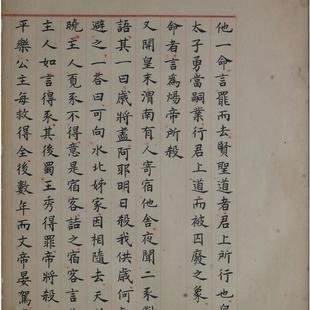 他一命言罷而去賢聖道者君上所行也皇
太子勇當嗣業行君上道而被囚廢之象
命者言為煬帝所殺
又開皇末渭南有人寄宿他舍夜聞二豕對
語其一曰歲將盡阿耶明日殺我供歲何
避之一荅曰可向水北姊家因相隨去天
曉主人覓豕不得意是宿客詰之宿客言
主人如言得豕其後蜀王秀得罪帝將殺
平樂公主每救得全後數年而文帝晏駕